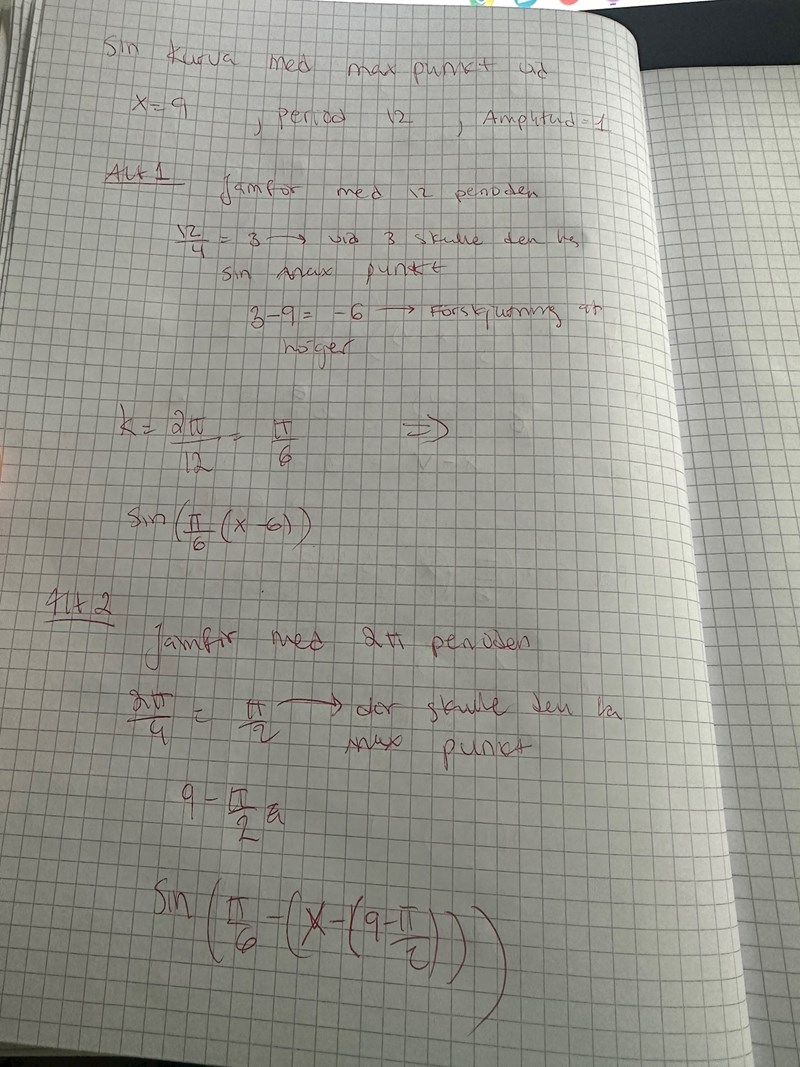 Sin kurva med max punkt vid
x=9 , period 12 , Amplitud=1
Alt 1 Jämför med 12 perioden
12/4 = 3 → vid 3 skulle den ha
sin max punkt
3-9= -6 → Förskjutning åt
höger
k= 2π/12 = π/6 ⇒
sin(π/6 (x-6))
Alt 2
Jämför med 2π perioden
2π/4 = π/2 → där skulle den ha
max punkt
9 - π/2
sin(π/6 -(x-(9-π/2)))